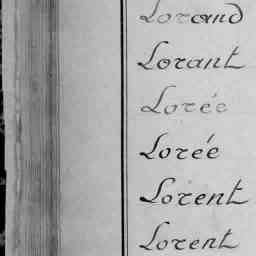 Lorand
Lorant
Lorée
Lorée
Lorent
Lorent